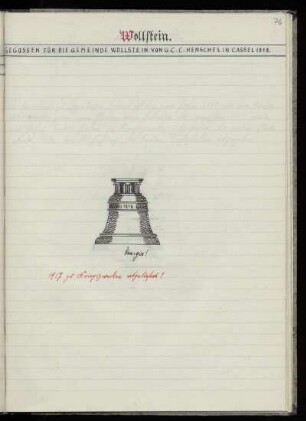 76
Wollstein.
GEGOSSEN FÜR DIE GEMEINDE WOLLSTEIN VON G. C. C. HENSCHEL IN CASSEL 1818.
1917 zu Kriegszwecken abgeliefert!